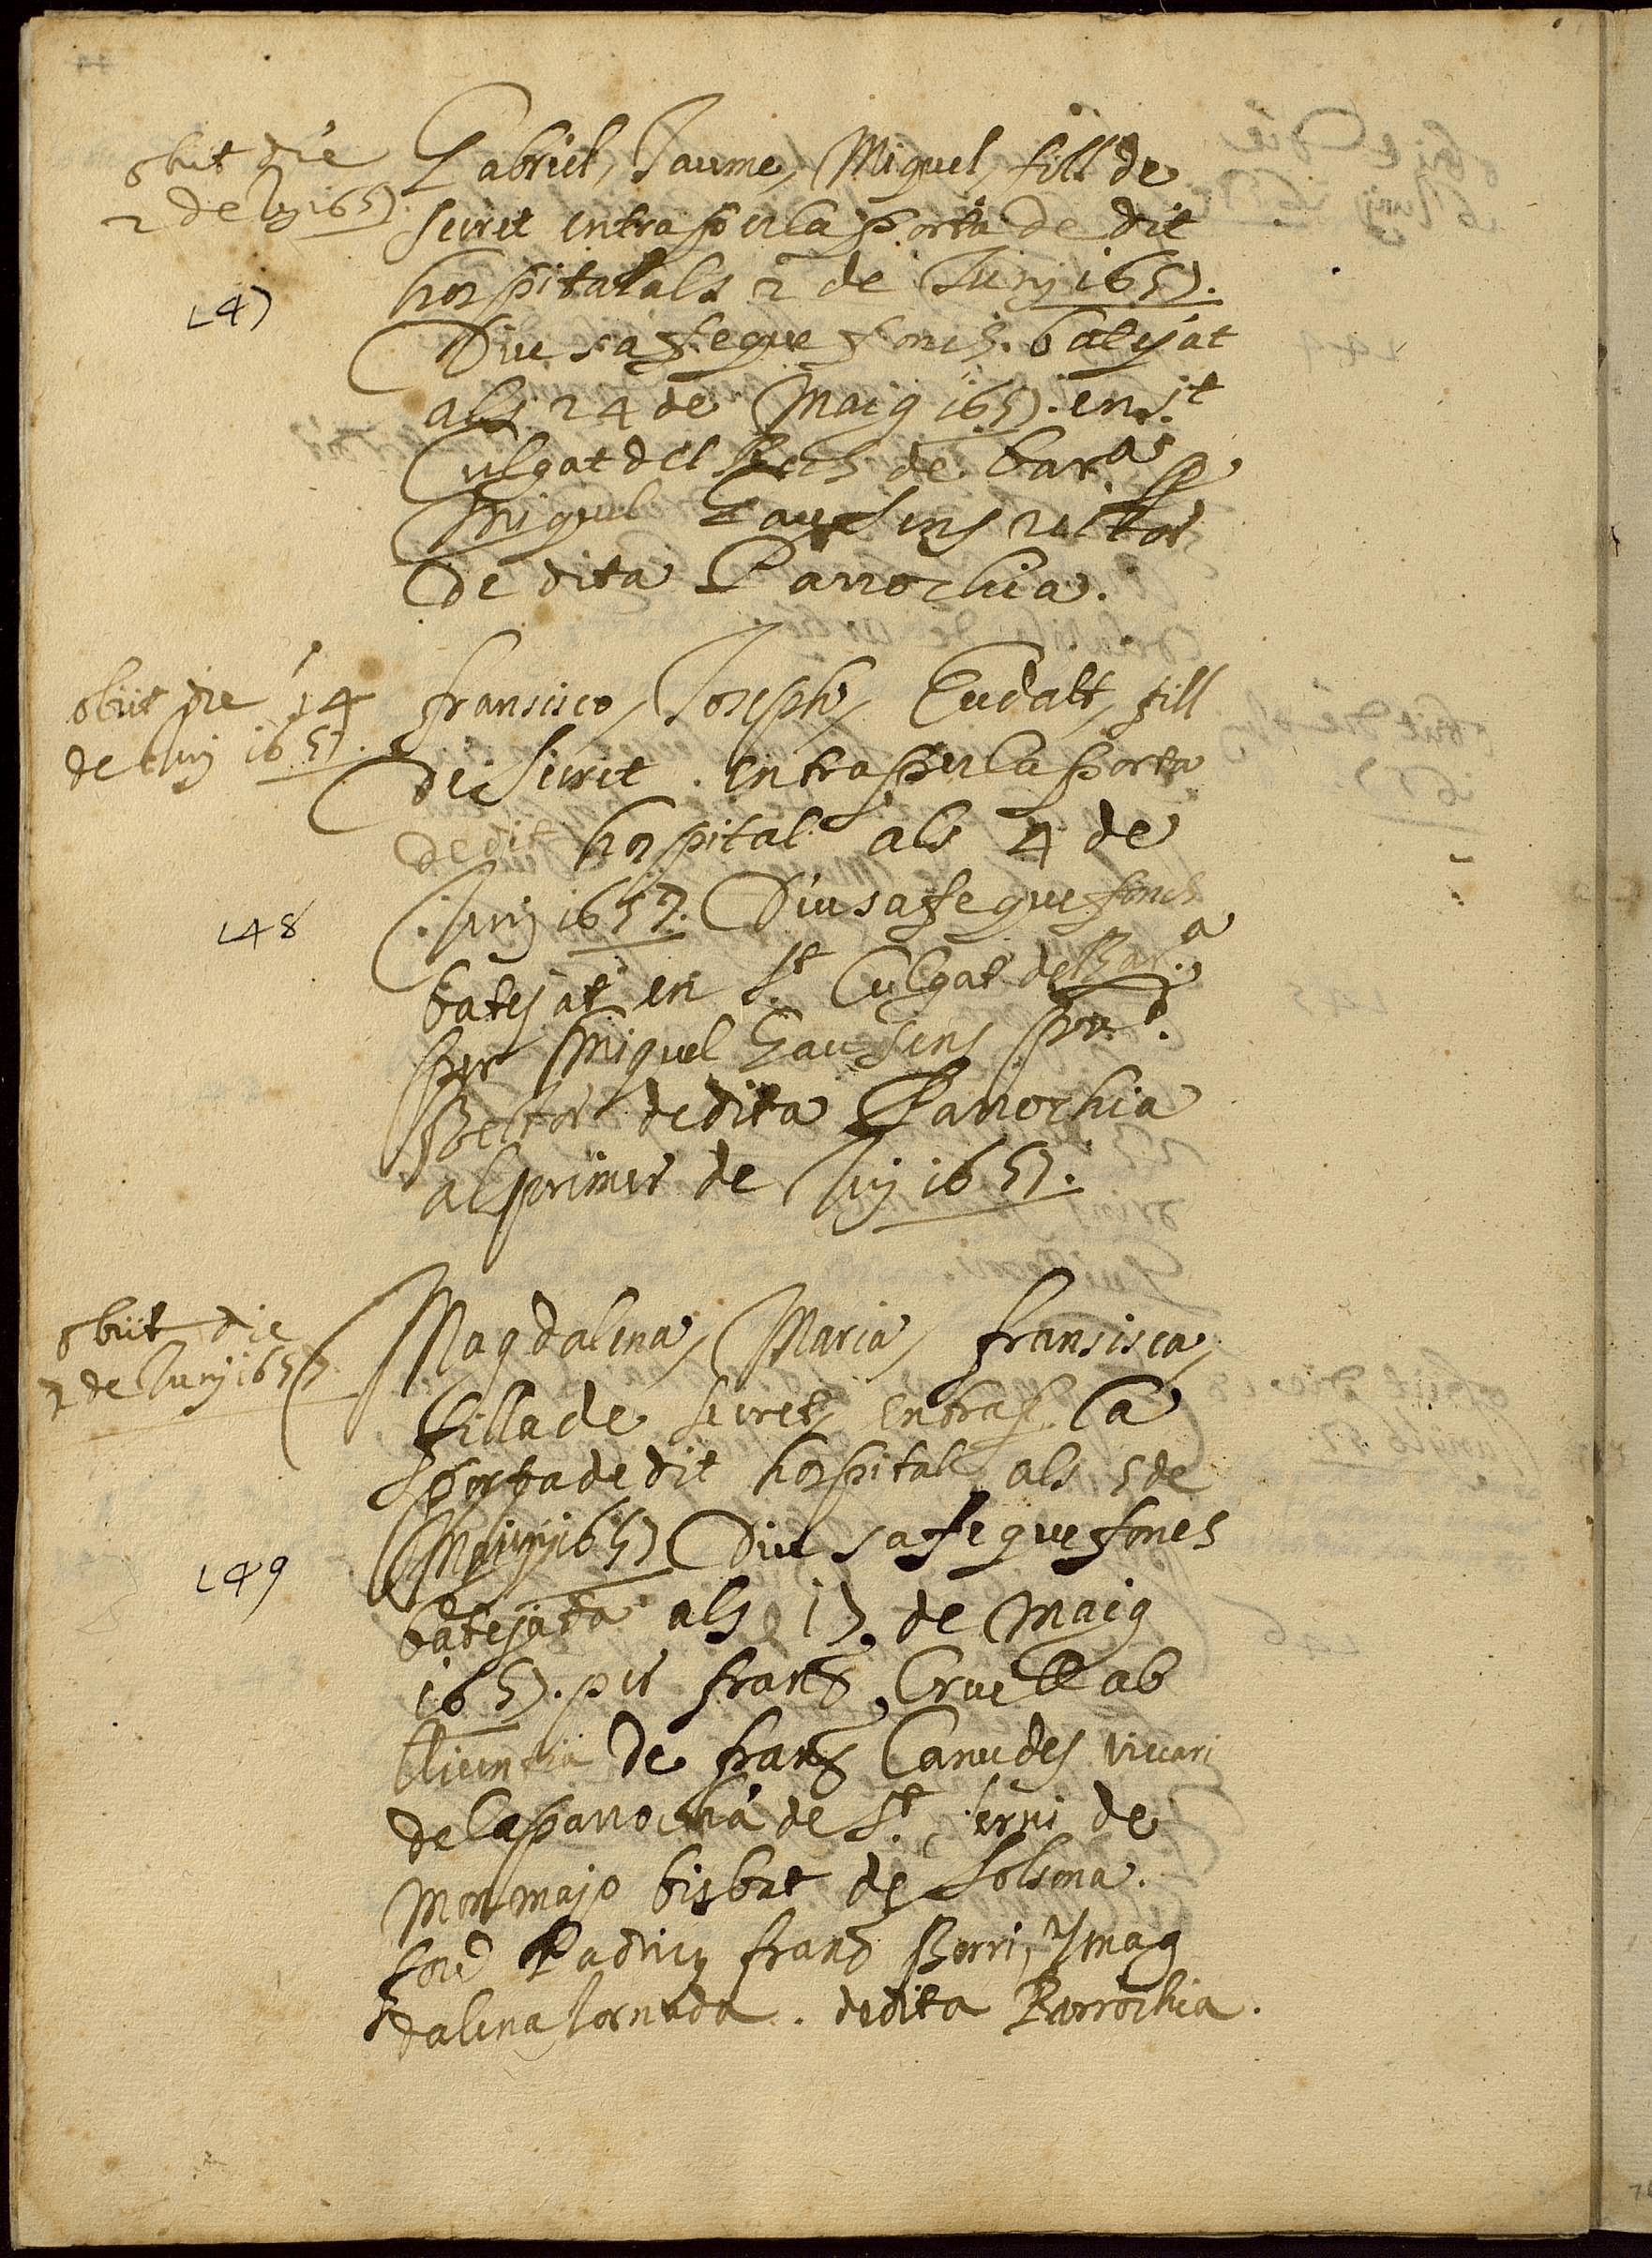 obiit die
2 de Juny 1657.
147
Gabriel, Jaume, Miquel, fill de
secret entra per la porta de dit
hospital als 2 de Juny 1657.
Diu sa fe que fonch. batejat
als 24 de Maig 1657. en St
Culgat del Rech de Bar.a per
Miquel Gausens rector
de dita Parrochia.
obiit die 14
de Juny 1657.
148
fransisco, Joseph, Eudalt, fill
de secret. entra per la porta
de dit hospital als 4 de
Juny 1657. Diu sa fe que fonch
batejat en St. Culgat de Bar.a
per Miquel Gausens pre.
Rector de dita Parrochia
al primer de Juny 1657.
obiit die
7 de Juny 1657
149
Magdalena, Maria, fransisca,
filla de secret, entra per la
porta de dit hospital als 5 de
Juny 1657 Diu sa fe que fonch
batejada als 17. de Maig
1657. per franch Cruell ab
llicencia de franch Canudes viccari
de la parrochia de St. Serni de
Monmajo bisbat de Solsona.
foren Padrins franch Borri, y mag
dalena Tornada. de dita Parrochia.